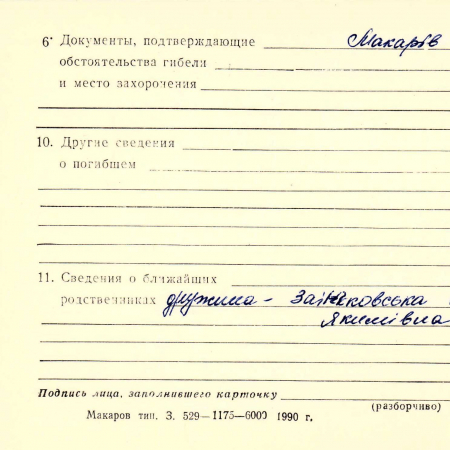 6· Документы, подтверждающие Макарів
обстоятельства гибели
и место захоронения
10. Другие сведения
о погибшем
11. Сведения о ближайших
родственниках дружина -
Якимівна
Подпись лица, заполнившего карточку
(разборчиво)
Макаров тип. З. 529—1175—6000 1990 г.